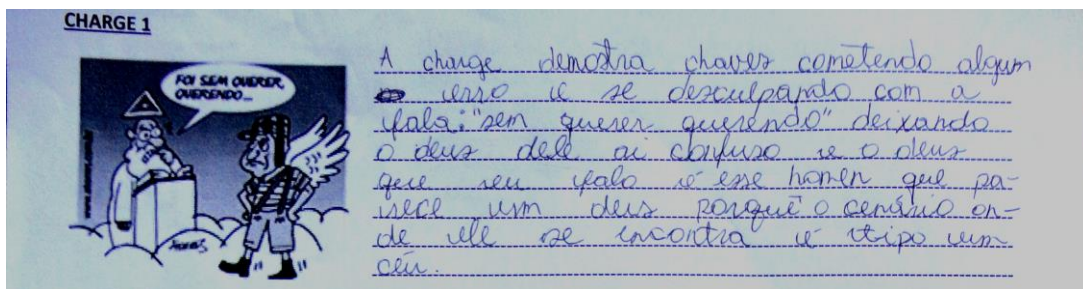 CHARGE 1
FOI SEM QUERER,
QUERENDO...
A charge demostra chaves cometendo algum
erro e se desculpando com a
fala: "sem querer querendo" deixando
o deus dele ai confuso e o deus
que eu falo é esse homen que pa-
rece um deus porque o cenário on-
de ele se encontra é tipo um
céu.